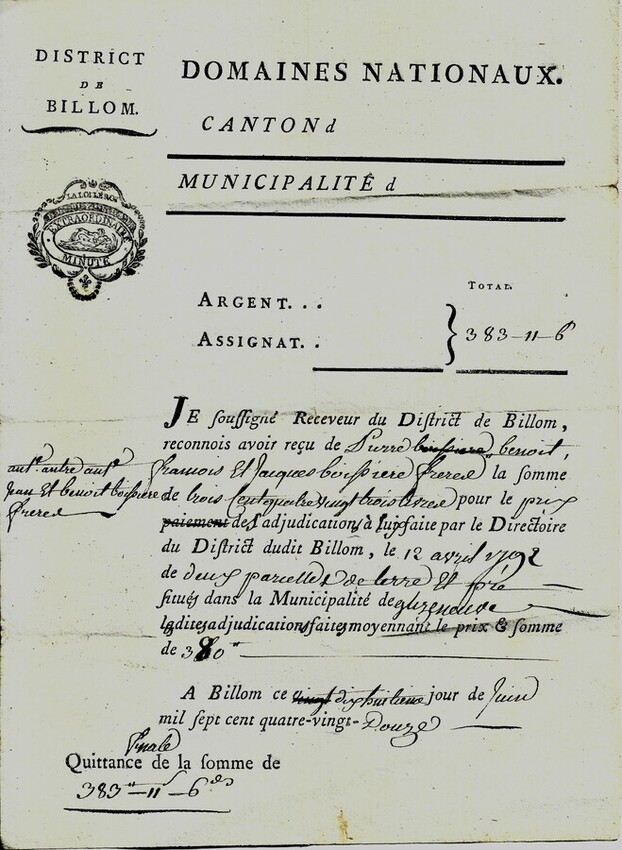 DISTRICT
DE
BILLOM.
DOMAINES NATIONAUX.
CANTON d
MUNICIPALITÉ d
LA LOI LE ROI
EXTRAORDINAIRE
MINUTE
TOTAL.
ARGENT. . .
ASSIGNAT. .
383-11-6
JE soussigné Receveur du District de Billom,
reconnois avoir reçu de Pierre benoit,
francois Et Jacques boissiere freres la somme
Jean Et benoit boissiere
freres
de trois Cent quatre vingt trois livres pour le prix
paiement des adjudications à faite par le Directoire
du District dudit Billom, le 12 avril 1792
de deux parcelles de terre Et pré
situés dans la Municipalité de
lesdites adjudications faites moyennant le prix & somme
de 380
A Billom ce vingt dixhuitieme jour de Juin
mil sept cent quatre-vingt-Douze
finale
Quittance de la somme de
383-11-6